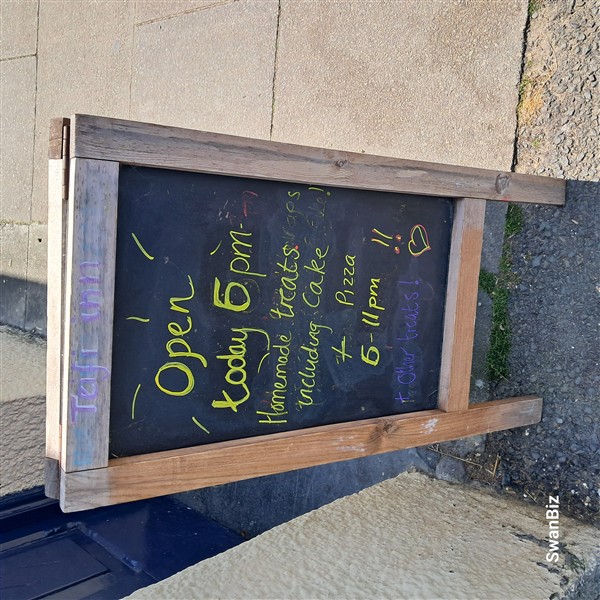 inn
Open
today 5pm-
Homemade treats
including Cake
+ Pizza
5-11pm !!
+ other treats!
SwanBiz